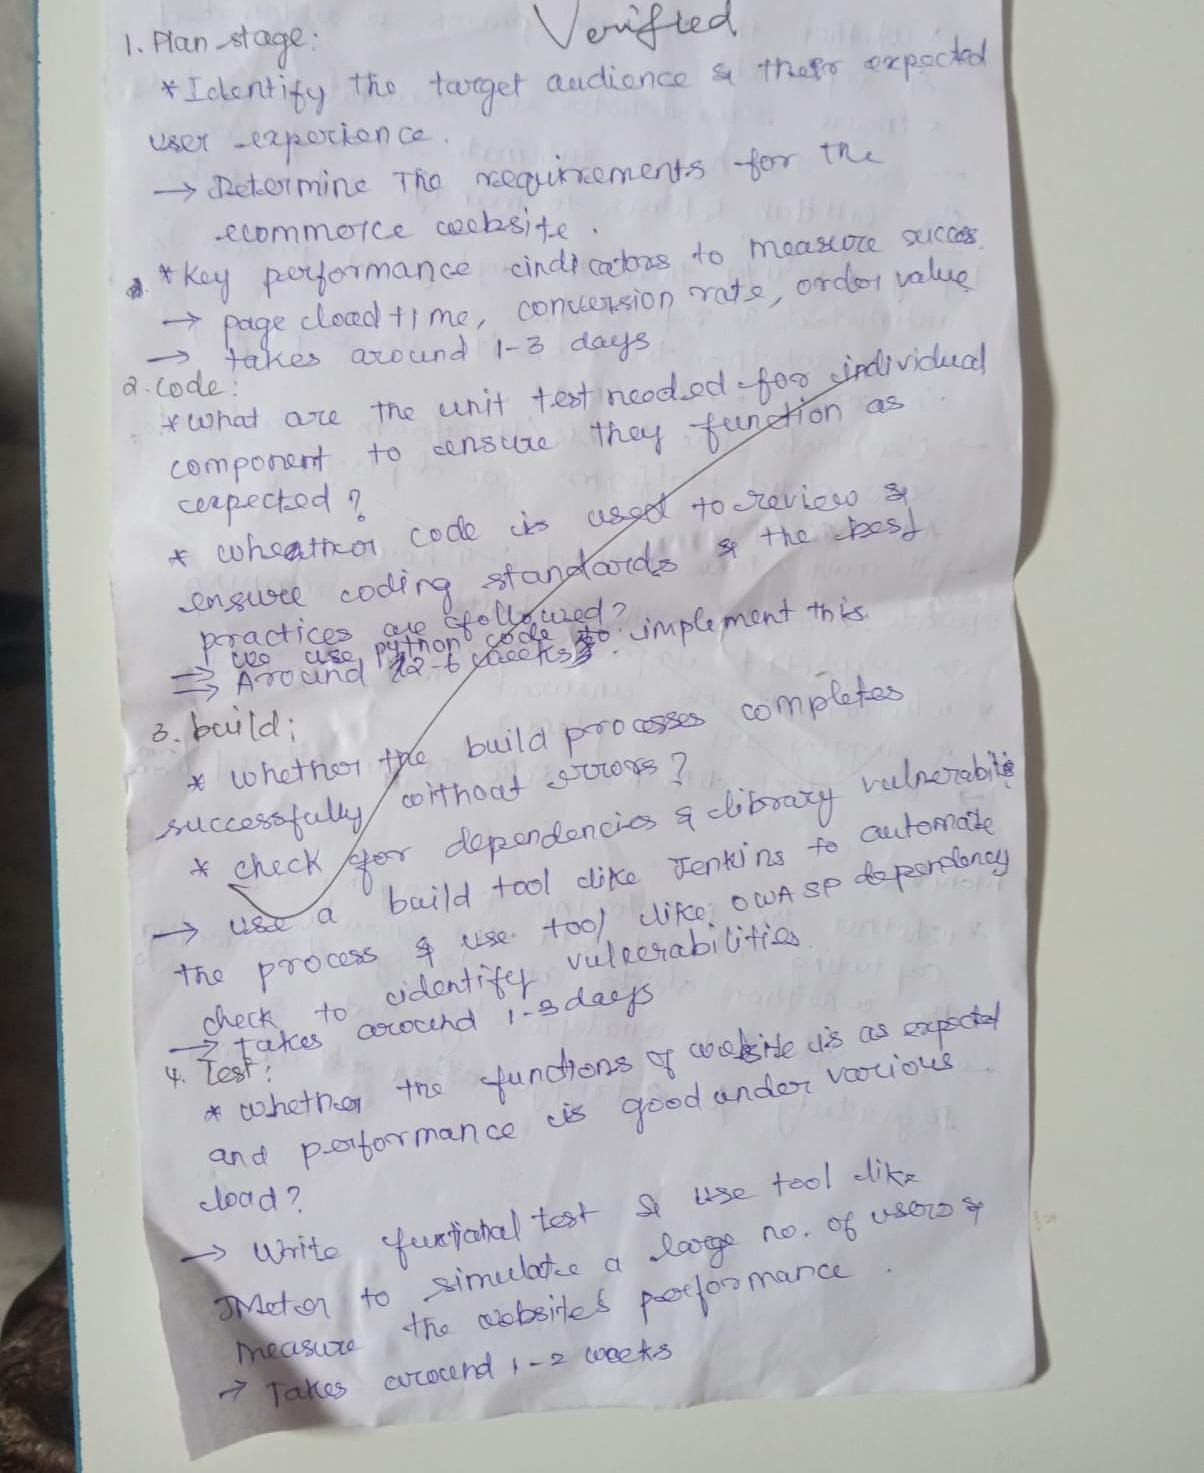 Verified
1. Plan stage:
* Identify the target audience & their expected
user experience.
→ Determine The requirements for the
ecommerce website.
* Key performance indicators to measure succes.
→ page load time, conversion rate, order value
→ takes around 1-3 days
2. code:
* what are the unit test needed for individual
component to ensure they function as
expected?
* wheather code is used to review &
ensure coding standards & the best
practices are followed?
⇒ we use python code to implement this
⇒ Around 2-6 weeks.
3. build:
* whether the build processes completes
successfully without errors?
* check for dependencies & library vulnerabilite
→ use a build tool like Jenkins to automate
the process & use tool like OWASP dependency
check to identify vulnerabilities.
→ Takes around 1-3 days
4. Test:
* whether the functions of website is as expected
and performance is good under various
load?
→ Write functional test & use tool like
JMeter to simulate a large no. of users &
measure the websites performance.
→ Takes around 1-2 weeks